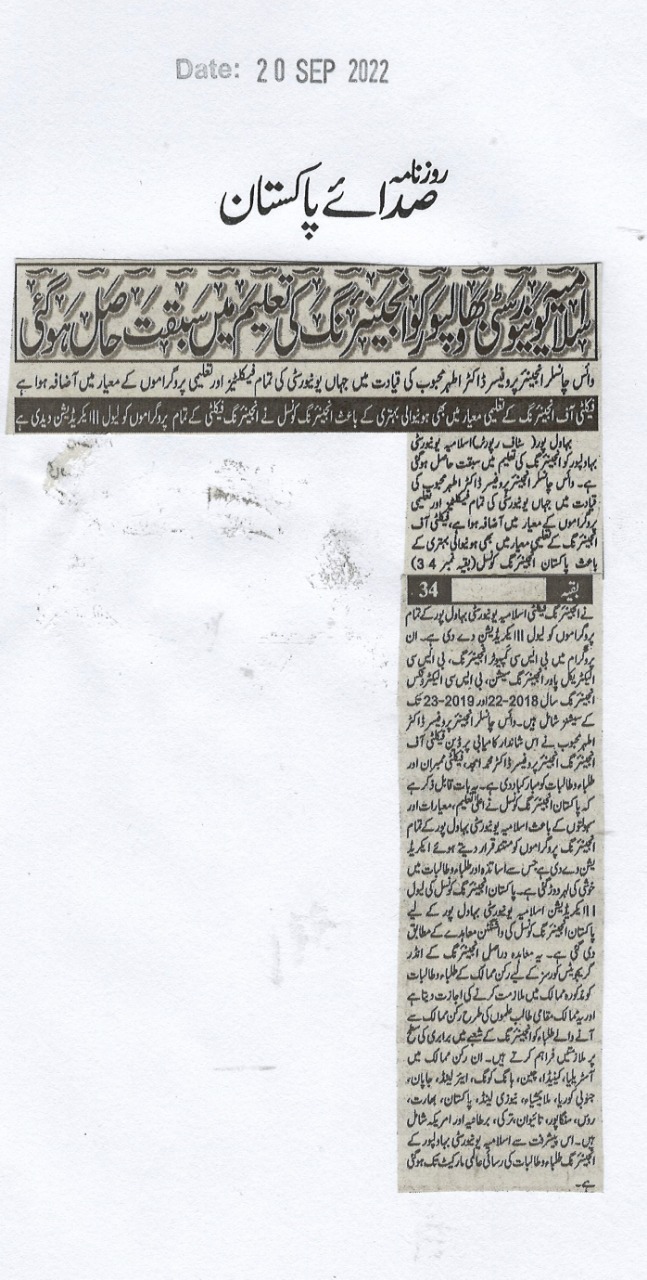 Date: 20 SEP 2022
روزنامہ
صدائے پاکستان
اسلامیہ یونیورسٹی بہالپور کو انجینئرنگ کی تعلیم میں سبقت حاصل ہوگئی
وائس چانسلر انجینئر پروفیسر ڈاکٹر اطہر محبوب کی قیادت میں جہاں یونیورسٹی کی تمام فیکلٹیز اور تعلیمی پروگراموں کے معیار میں اضافہ ہوا ہے
فیکلٹی آف انجینئرنگ کے تعلیمی معیار میں بھی ہونیوالی بہتری کے باعث انجینئرنگ کونسل نے انجینئرنگ فیکلٹی کے تمام پروگراموں کو لیول II ایکریڈیشن دیدی ہے
بہاول پور( سٹاف رپورٹ) اسلامیہ یونیورسٹی
بہاولپور کو انجینئرنگ کی تعلیم میں سبقت حاصل ہوگئی
ہے۔ وائس چانسلر انجینئر پروفیسر ڈاکٹر اطہر محبوب کی
قیادت میں جہاں یونیورسٹی کی تمام فیکلٹیز اور تعلیمی
پروگراموں کے معیار میں اضافہ ہوا ہے، فیکلٹی آف
انجینئرنگ کے تعلیمی معیار میں بھی ہونیوالی بہتری کے
باعث پاکستان انجینئرنگ کونسل (بقیہ نمبر 34)
بقیہ 34
نے انجینئرنگ فیکلٹی اسلامیہ یونیورسٹی بہاول پور کے تمام
پروگراموں کو لیول II ایکریڈیشن دے دی ہے۔ ان
پروگرام میں بی ایس سی کمپیوٹر انجینئرنگ، بی ایس سی
الیکٹریکل پاور انجینئرنگ سیشن، بی ایس سی الیکٹرونکس
انجینئرنگ سال 2018-22 اور 2019-23 تک
کے سیشنز شامل ہیں۔ وائس چانسلر انجینئر پروفیسر ڈاکٹر
اطہر محبوب نے اس شاندار کامیابی پر ڈین فیکلٹی آف
انجینئرنگ انجینئر پروفیسر ڈاکٹر محمد امجد، فیکلٹی ممبران اور
طلباء و طالبات کو مبارکباد دی ہے۔ یہ بات قابل ذکر ہے
کہ پاکستان انجینئرنگ کونسل نے اعلیٰ تعلیم، معیارات اور
سہولتوں کے باعث اسلامیہ یونیورسٹی بہاول پور کے تمام
انجینئرنگ پروگراموں کو مستند قرار دیتے ہوئے ایکریڈ
یشن دے دی ہے جس سے اساتذہ اور طلباء و طالبات میں
خوشی کی لہر دوڑ گئی ہے۔ پاکستان انجینئرنگ کونسل کی لیول
II ایکریڈیشن اسلامیہ یونیورسٹی بہاول پور کے لیے
پاکستان انجینئرنگ کونسل کی واشنگٹن معاہدے کے مطابق
دی گئی ہے۔ یہ معاہدہ دراصل انجینئرنگ کے انڈر
گریجویٹس کورسز کے لیے رکن ممالک کے طلباء و طالبات
کو مذکورہ ممالک میں ملازمت کرنے کی اجازت دیتا ہے
اور یہ ممالک مقامی طالب علموں کی طرح رکن ممالک سے
آنے والے طلباء کو انجینئرنگ کے شعبے میں برابری کی سطح
پر ملازمتیں فراہم کرتے ہیں۔ ان رکن ممالک میں
آسٹریلیا، کینیڈا، چین، ہانگ کونگ، آئرلینڈ، جاپان،
جنوبی کوریا، ملائیشیاء، نیوزی لینڈ، پاکستان، بھارت،
روس، سنگاپور، تائیوان، ترکی، برطانیہ اور امریکہ شامل
ہیں۔ اس پیشرفت سے اسلامیہ یونیورسٹی بہاولپور کے
انجینئرنگ طلباء و طالبات کی رسائی عالمی مارکیٹ تک ہوگئی
ہے۔